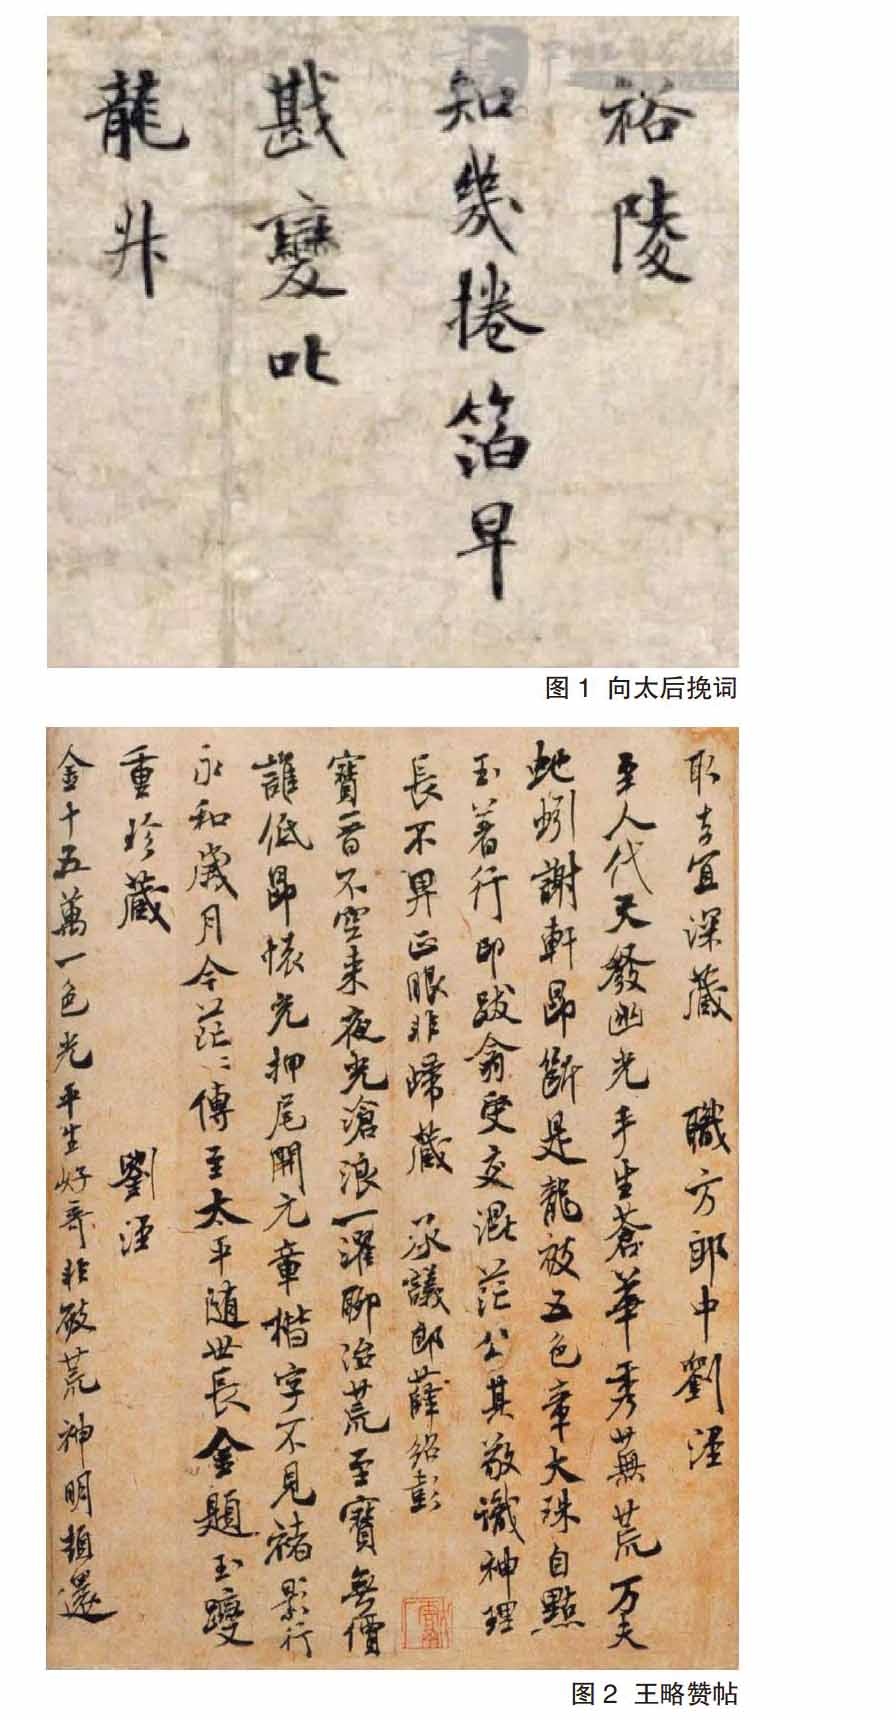 裕陵
知幾捲箔早
戡變叱
龍升
图 1 向太后挽词
取玄宜深藏 職方郎中劉涇
至人代天發幽光手生蒼華秀蕪荒万夫
虵蚓謝軒昂斷是龍被五色章大珠自點
玉著行印跋翕更交混茫公其敬識神理
長不畀正眼非歸藏 承議郎薛紹彭
寶晉不空来夜光滄浪一濯聊治荒至寶無價
誰低昂懷充押尾開元章楷字不見褚影行
永和歲月今茫々傳至太平随世長金題玉躞
重珍藏 劉涇
金十五萬一色光平生好奇非破荒神明頓還
图 2 王略赞帖